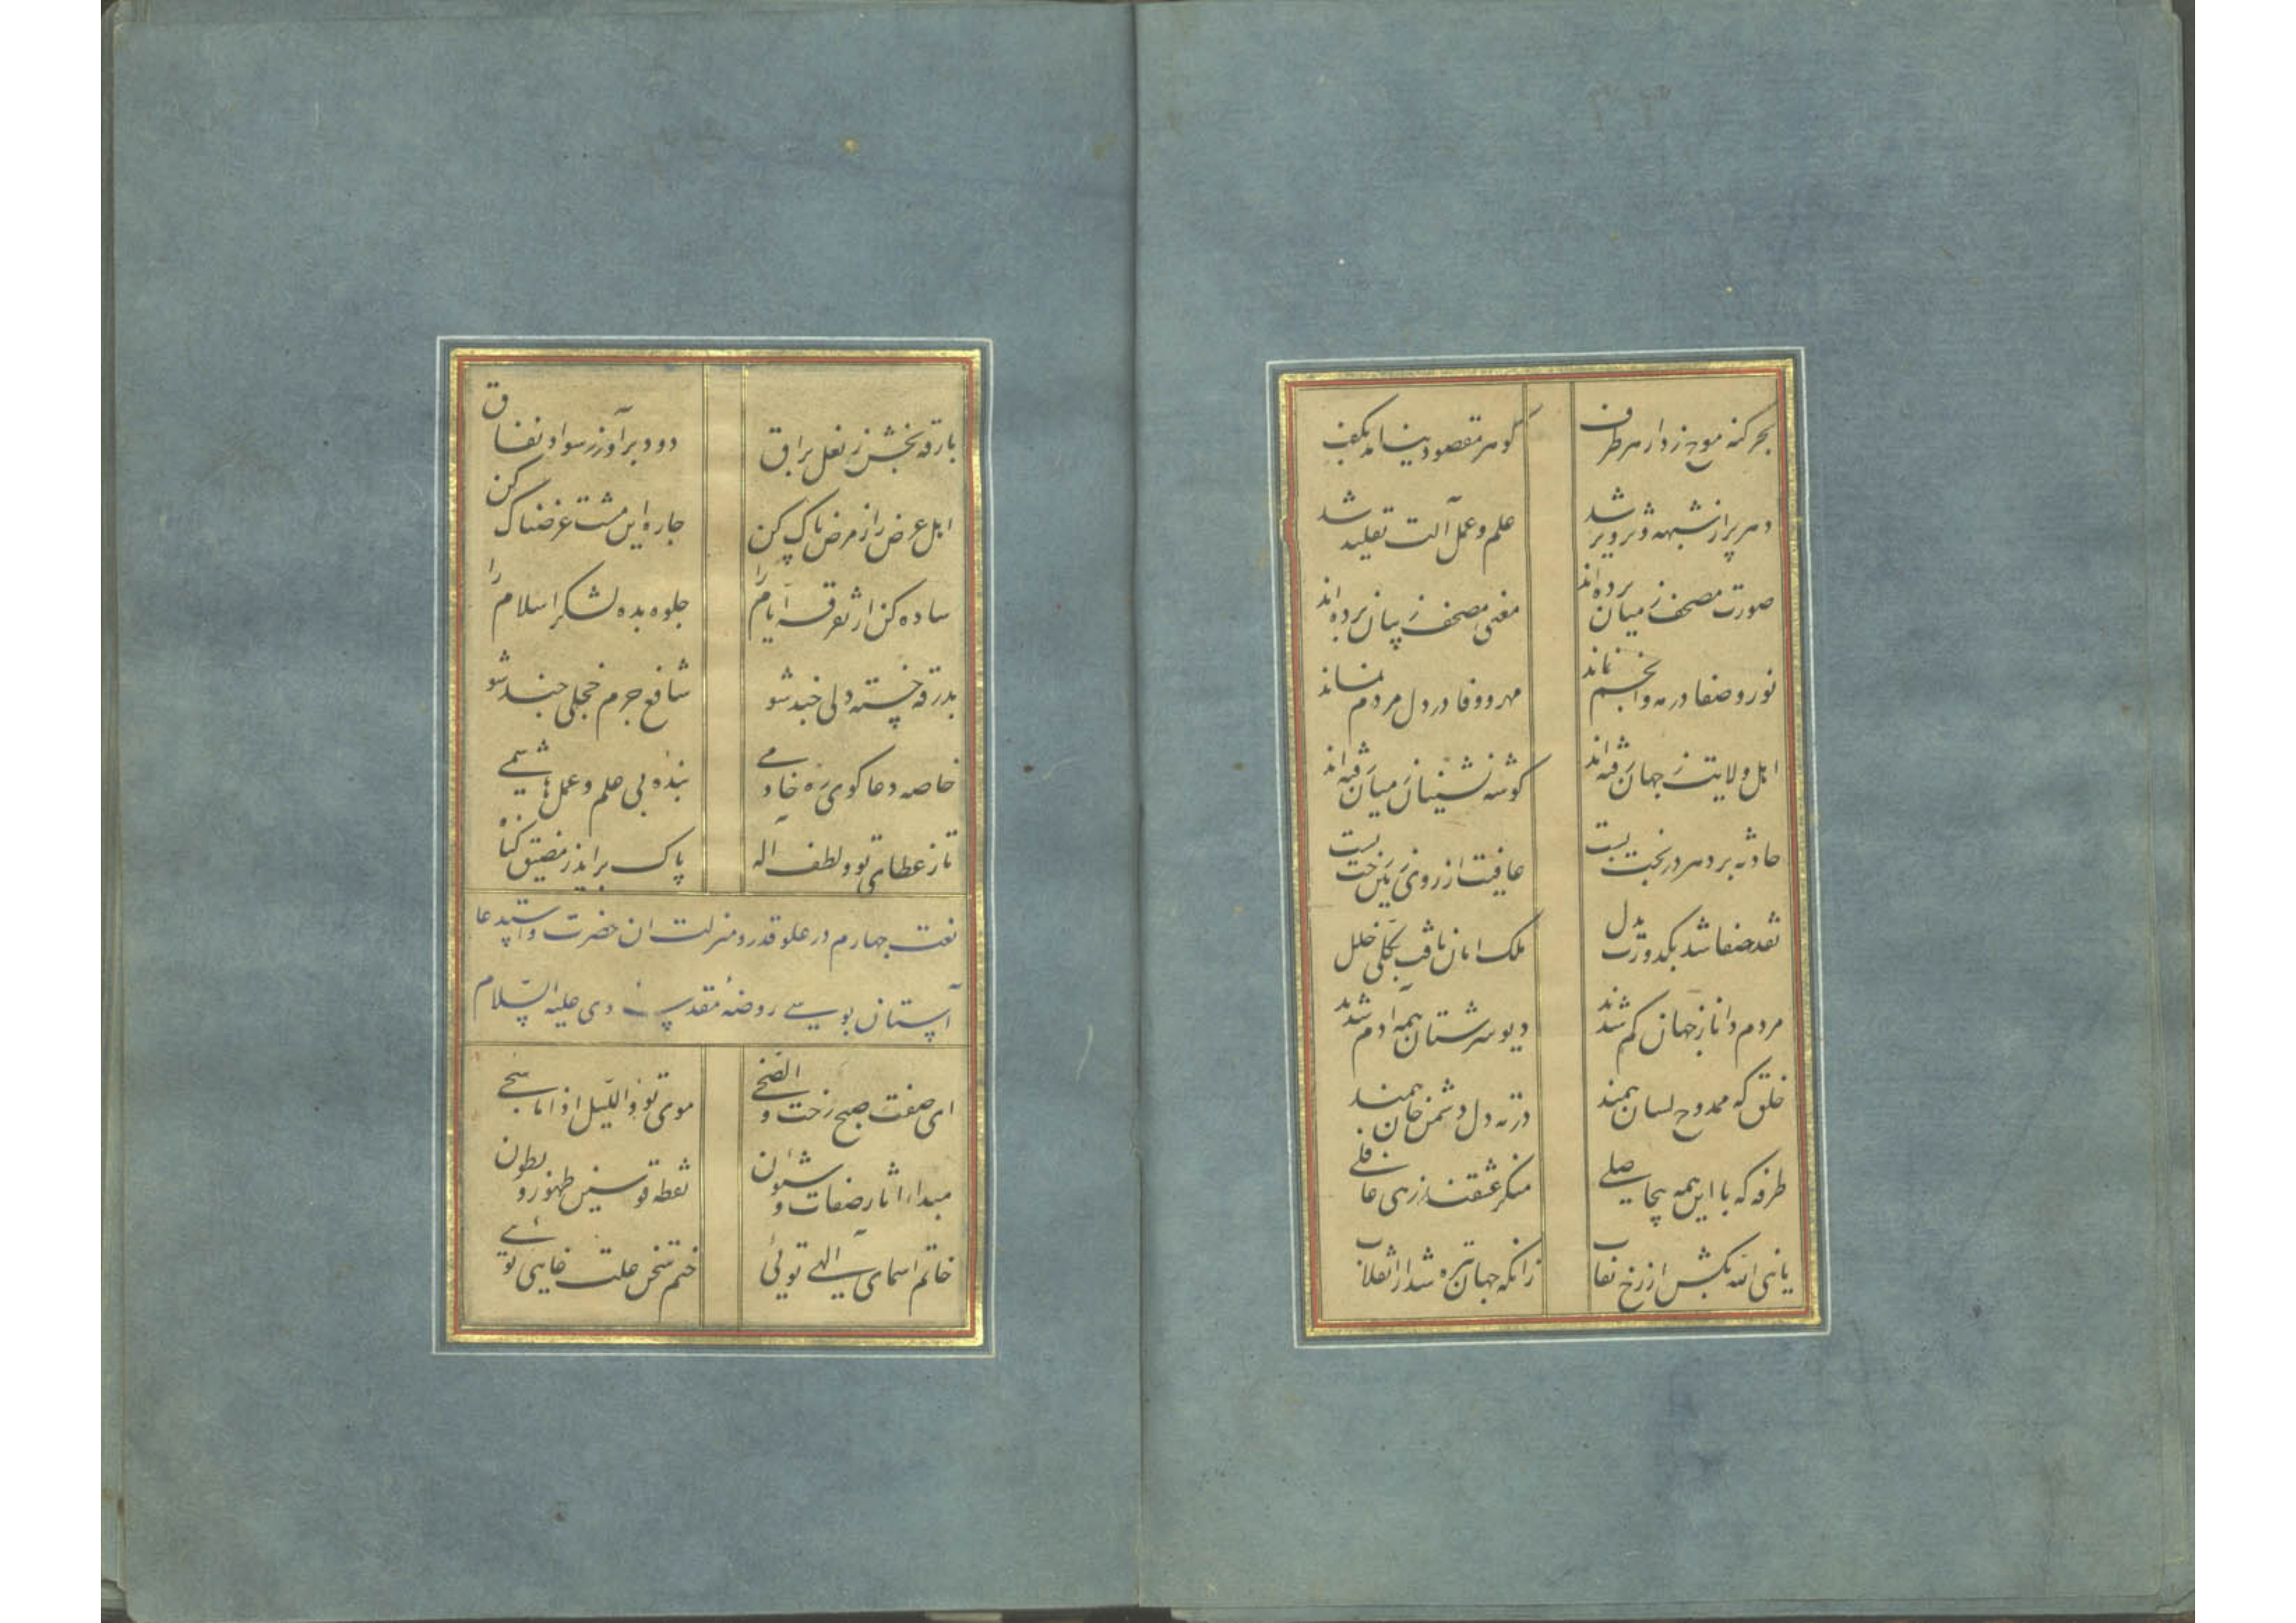 بحر گنه موج زد از هر طرف گوهر مقصود نیامد بکف
دهر پر از شبهه و تزویر شد علم و عمل آلت تقلید شد
صورت مصحف ز میان برده‌اند معنی مصحف ز بیان برده‌اند
نور و صفا در مه و انجم نماند مهر و وفا در دل مردم نماند
اهل ولایت ز جهان رفته‌اند گوشه نشینان ز میان رفته‌اند
حادثه بر دهر در بخت بست عافیت از روی زمین رخت بست
نقد صفا شد بکدورت بدل ملک امان یافت بکلی خلل
مردم دانا ز جهان کم شدند دیو سرشتان همه آدم شدند
خلق که ممدوح لسان همند در ته دل دشمن جان همند
طرفه که با این همه بیحاصلی منکر عشقند زهی غافلی
یا نبی الله بکش از رخ نقاب زانکه جهان تیره شد از انقلاب
بارقه بخش ز نعل براق دود برآور ز سواد نفاق
اهل غرض را ز مرض پاک کن چاره این مشت غرضناک کن
ساده کن از تفرقه ایام را جلوه بده لشکر اسلام را
بدرقه خسته دلی چند شو شافع جرم خجلی چند شو
خاصه دعاگوی ره خادمی بنده بی علم و عمل هاشمی
تا ز عطای تو و لطف اله پاک برآید ز مضیق گناه
نعت چهارم در علو قدر و منزلت ان حضرت و استدعا
آستان بوسی روضهٔ مقدسهٔ وی علیه السلام
ای صفت صبح رخت والضحی موی تو واللیل اذا ما سجی
مبداء اثار صفات و شئون نقطه قوسین ظهور و بطون
خاتم اسمای الهی توئی ختم سخن علت غایی توئی